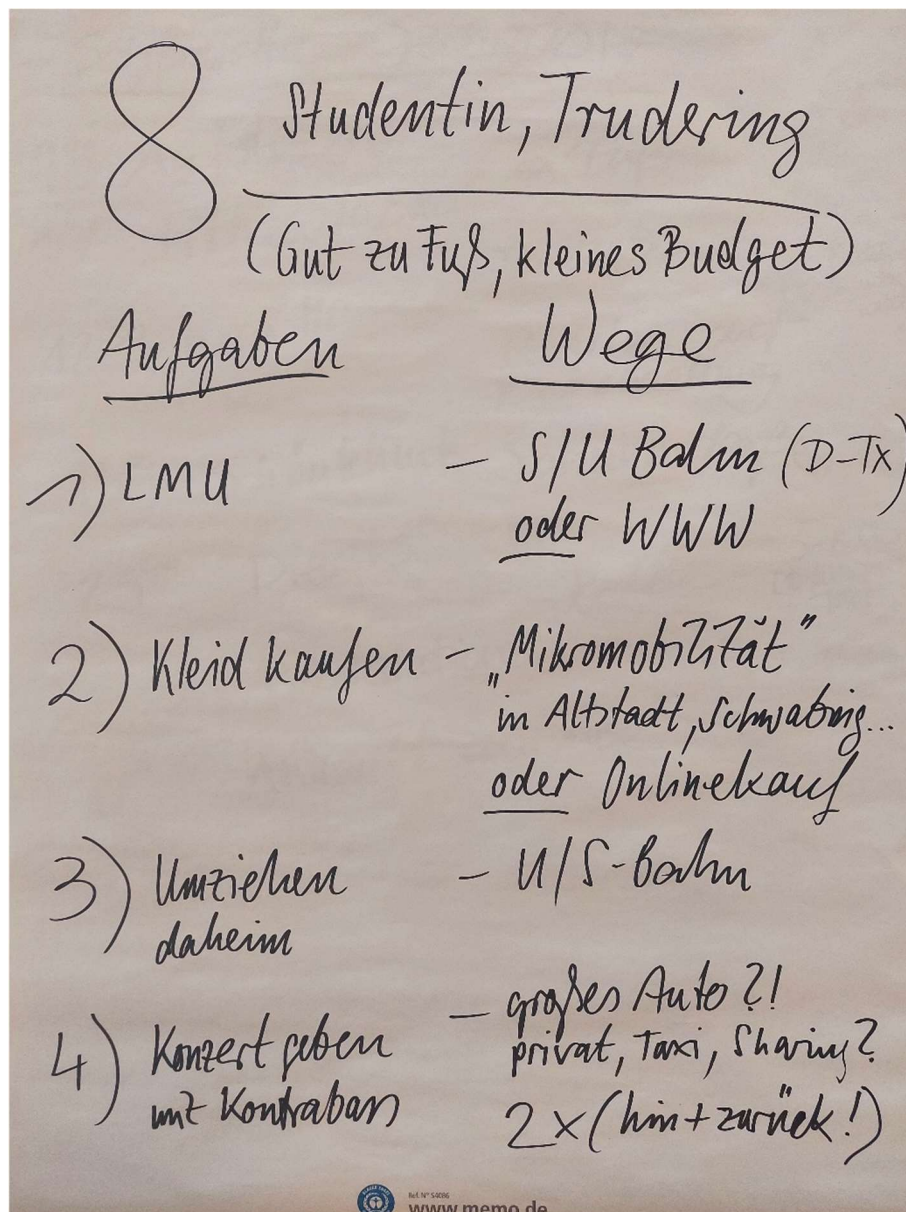 8 Studentin, Trudering
(Gut zu Fuß, kleines Budget)
Aufgaben Wege
1) LMU - S/U Bahn (D-Tx)
oder WWW
2) Kleid kaufen - „Mikromobilität"
in Altstadt, Schwabing...
oder Onlinekauf
3) Umziehen - U/S-Bahn
daheim
4) Konzert geben - großes Auto?!
privat, Taxi, Sharing?
mit Kontrabass
2x (hin + zurück!)
Ref. N° 54086
www.memo.de